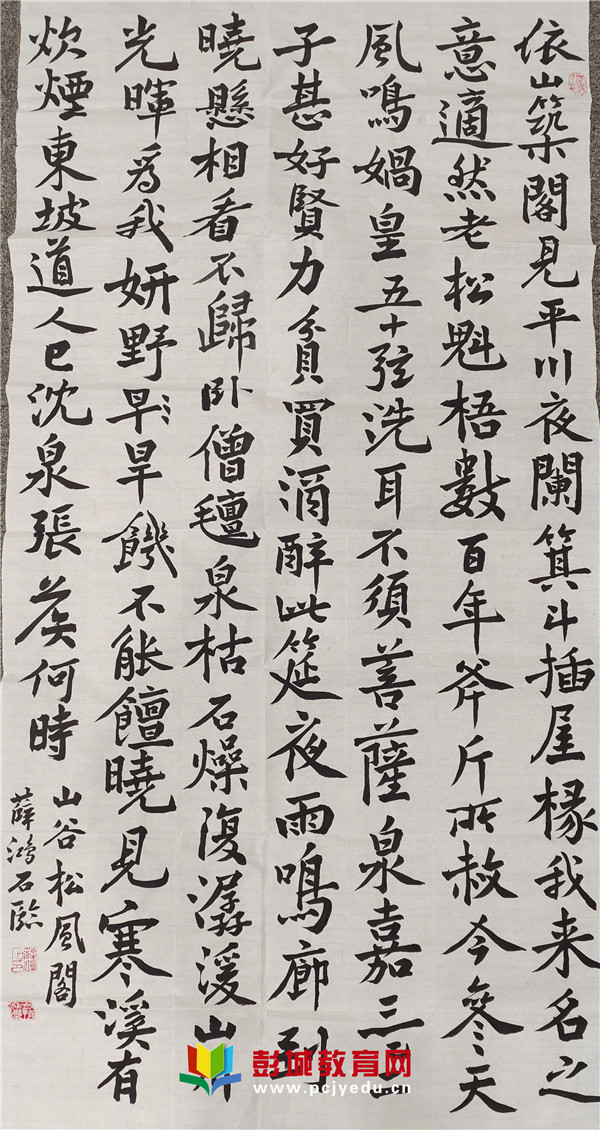 依山築閣見平川夜闌箕斗插屋椽我来名之
意適然老松魁梧數百年斧斤所赦今參天
風鳴媧皇五十弦洗耳不須菩薩泉嘉三二
子甚好賢力貧買酒醉此筵夜雨鳴廊到
曉懸相看不歸臥僧氈泉枯石燥復潺湲山川
光暉為我妍野早旱饑不能饘曉見寒溪有
炊煙東坡道人已沈泉張侯何時
山谷松風閣
薛鴻石臨
彭城教育网
www.pcjyedu.cn